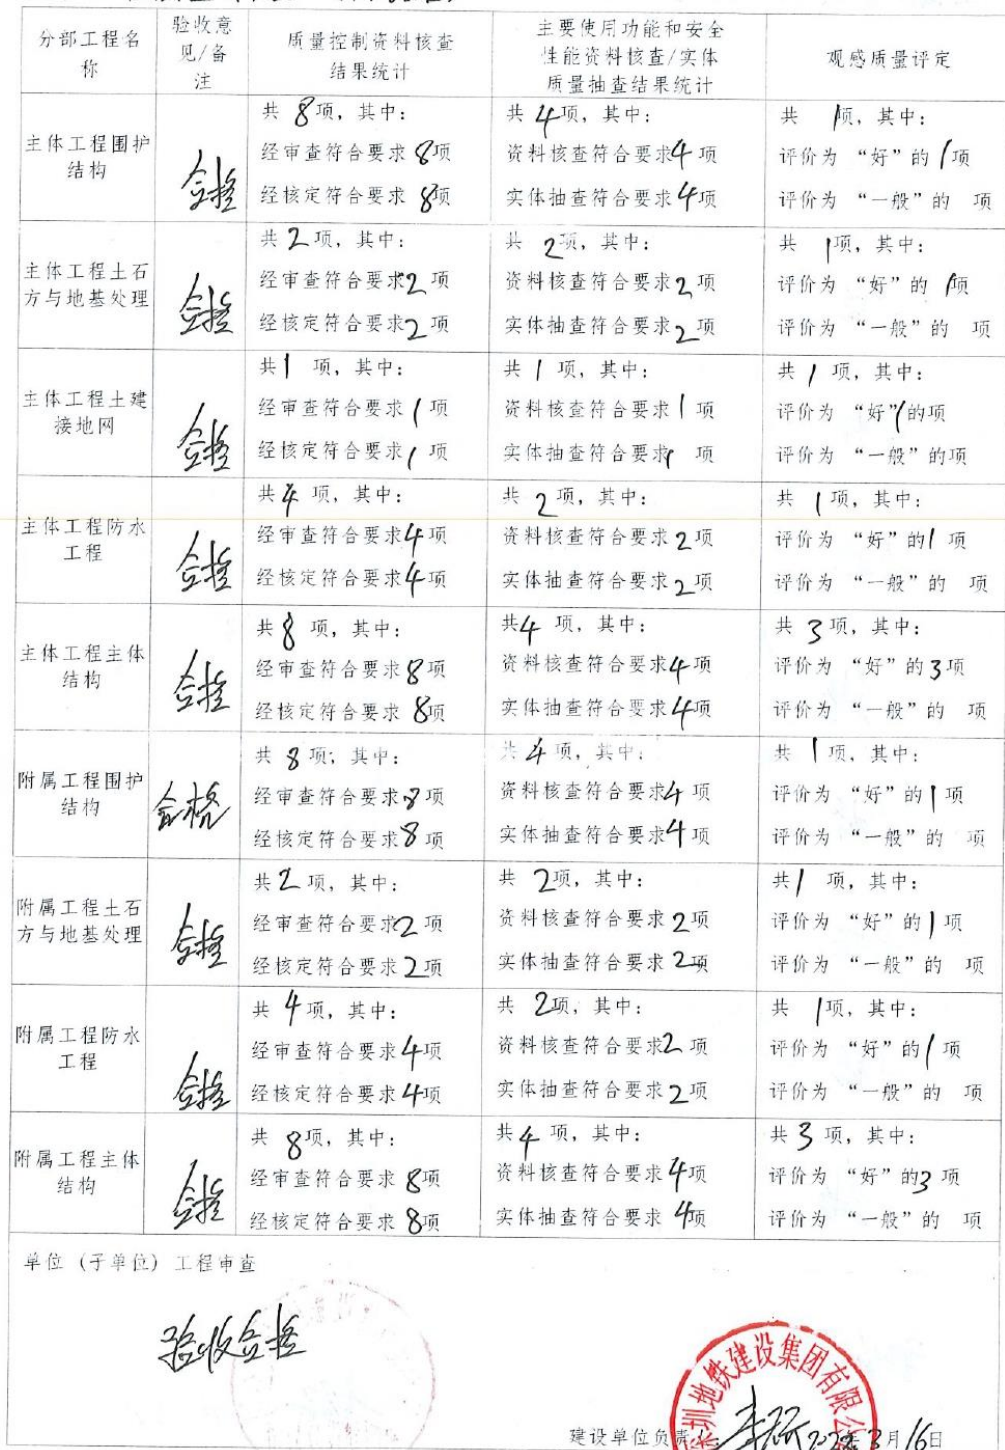 分部工程名
称
验收意
见/备
注
质量控制资料核查
结果统计
主要使用功能和安全
性能资料核查/实体
质量抽查结果统计
观感质量评定
主体工程围护
结构
合格
共 8项，其中：
经审查符合要求 8项
经核定符合要求 8项
共 4项，其中：
资料核查符合要求4 项
实体抽查符合要求4项
共 1项，其中：
评价为 “好”的 1项
评价为 “一般”的 项
主体工程土石
方与地基处理
合格
共 2 项，其中：
经审查符合要求2 项
经核定符合要求2 项
共 2项，其中：
资料核查符合要求2 项
实体抽查符合要求2项
共 1项，其中：
评价为 “好”的 1项
评价为 “一般”的 项
主体工程土建
接地网
合格
共1 项，其中：
经审查符合要求1 项
经核定符合要求1 项
共 1 项，其中：
资料核查符合要求1 项
实体抽查符合要求1 项
共 1 项，其中：
评价为 “好”1的项
评价为 “一般”的项
主体工程防水
工程
合格
共4 项，其中：
经审查符合要求4项
经核定符合要求4项
共 2项，其中：
资料核查符合要求2项
实体抽查符合要求2项
共 1项，其中：
评价为 “好”的1 项
评价为 “一般”的 项
主体工程主体
结构
合格
共8 项，其中：
经审查符合要求8项
经核定符合要求 8项
共4 项，其中：
资料核查符合要求4项
实体抽查符合要求4项
共 3项，其中：
评价为 “好”的3项
评价为 “一般”的 项
附属工程围护
结构
合格
共 8 项；其中：
经审查符合要求8 项
经核定符合要求8 项
共 4 项，其中：
资料核查符合要求4 项
实体抽查符合要求4 项
共 1 项，其中：
评价为 “好”的1项
评价为 “一般”的 项
附属工程土石
方与地基处理
合格
共2 项，其中：
经审查符合要求2 项
经核定符合要求2项
共 2项，其中：
资料核查符合要求2项
实体抽查符合要求2项
共1 项，其中：
评价为 “好”的1项
评价为 “一般”的 项
附属工程防水
工程
合格
共 4项，其中：
经审查符合要求4项
经核定符合要求4项
共 2项，其中：
资料核查符合要求2 项
实体抽查符合要求2项
共 1项，其中：
评价为 “好”的1 项
评价为 “一般”的 项
附属工程主体
结构
合格
共 8项，其中：
经审查符合要求 8项
经核定符合要求 8项
共4 项，其中：
资料核查符合要求4项
实体抽查符合要求 4项
共 3 项，其中：
评价为 “好”的3 项
评价为 “一般”的 项
单位（子单位）工程审查
验收合格
深圳地铁建设集团有限公
建设单位负责人： 3月16日